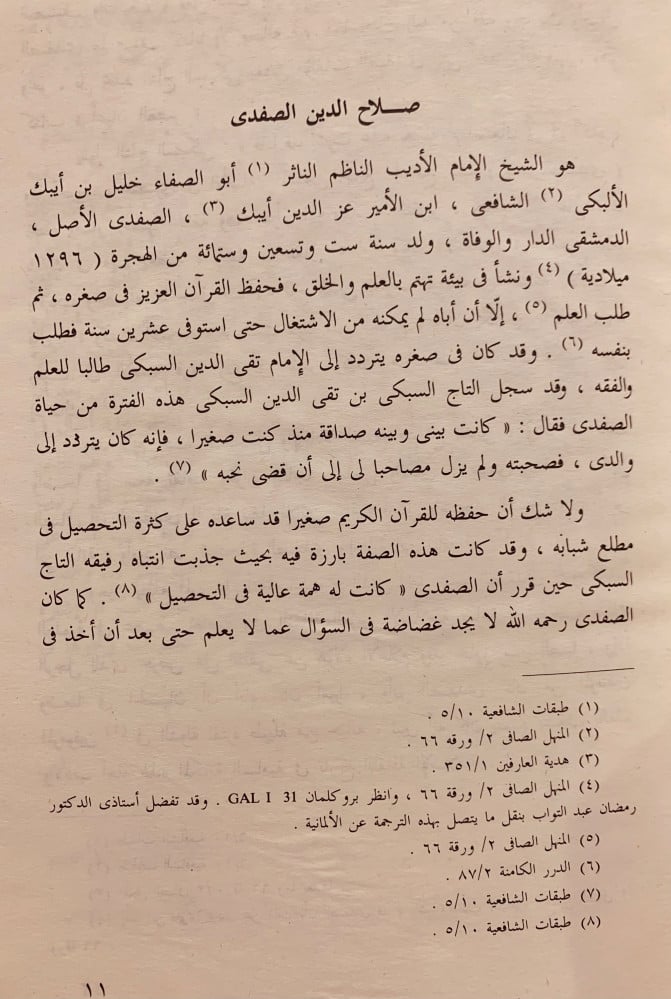 صـــلاح الدين الصفدى
هو الشيخ الإمام الأديب الناظم الناثر (١) أبو الصفاء خليل بن أيبك
الألبكى (٢) الشافعى ، ابن الأمير عز الدين أيبك (٣) ، الصفدى الأصل ،
الدمشقى الدار والوفاة ، ولد سنة ست وتسعين وستمائة من الهجرة ( ١٢٩٦
ميلادية ) (٤) ونشأ فى بيئة تهتم بالعلم والخلق ، فحفظ القرآن العزيز فى صغره ، ثم
طلب العلم (٥) ، إلّا أن أباه لم يمكنه من الاشتغال حتى استوفى عشرين سنة فطلب
بنفسه (٦) . وقد كان فى صغره يتردد إلى الإمام تقى الدين السبكى طالبا للعلم
والفقه ، وقد سجل التاج السبكى بن تقى الدين السبكى هذه الفترة من حياة
الصفدى فقال : « كانت بينى وبينه صداقة منذ كنت صغيرا ، فإنه كان يتردد إلى
والدى ، فصحبته ولم يزل مصاحبا لى إلى أن قضى نحبه » (٧) .
ولا شك أن حفظه للقرآن الكريم صغيرا قد ساعده على كثرة التحصيل فى
مطلع شبابه ، وقد كانت هذه الصفة بارزة فيه بحيث جذبت انتباه رفيقه التاج
السبكى حين قرر أن الصفدى « كانت له همة عالية فى التحصيل » (٨) . كما كان
الصفدى رحمه الله لا يجد غضاضة فى السؤال عما لا يعلم حتى بعد أن أخذ فى
(١) طبقات الشافعية ٥/١٠ .
(٢) المنهل الصافى ٢/ ورقه ٦٦ .
(٣) هدية العارفين ٣٥١/١ .
(٤) المنهل الصافى ٢/ ورقة ٦٦ ، وانظر بروكلمان GAL I 31 . وقد تفضل أستاذى الدكتور
رمضان عبد التواب بنقل ما يتصل بهذه الترجمة عن الألمانية .
(٥) المنهل الصافى ٢/ ورقة ٦٦ .
(٦) الدرر الكامنة ٨٧/٢ .
(٧) طبقات الشافعية ٥/١٠ .
(٨) طبقات الشافعية ٥/١٠ .
١١